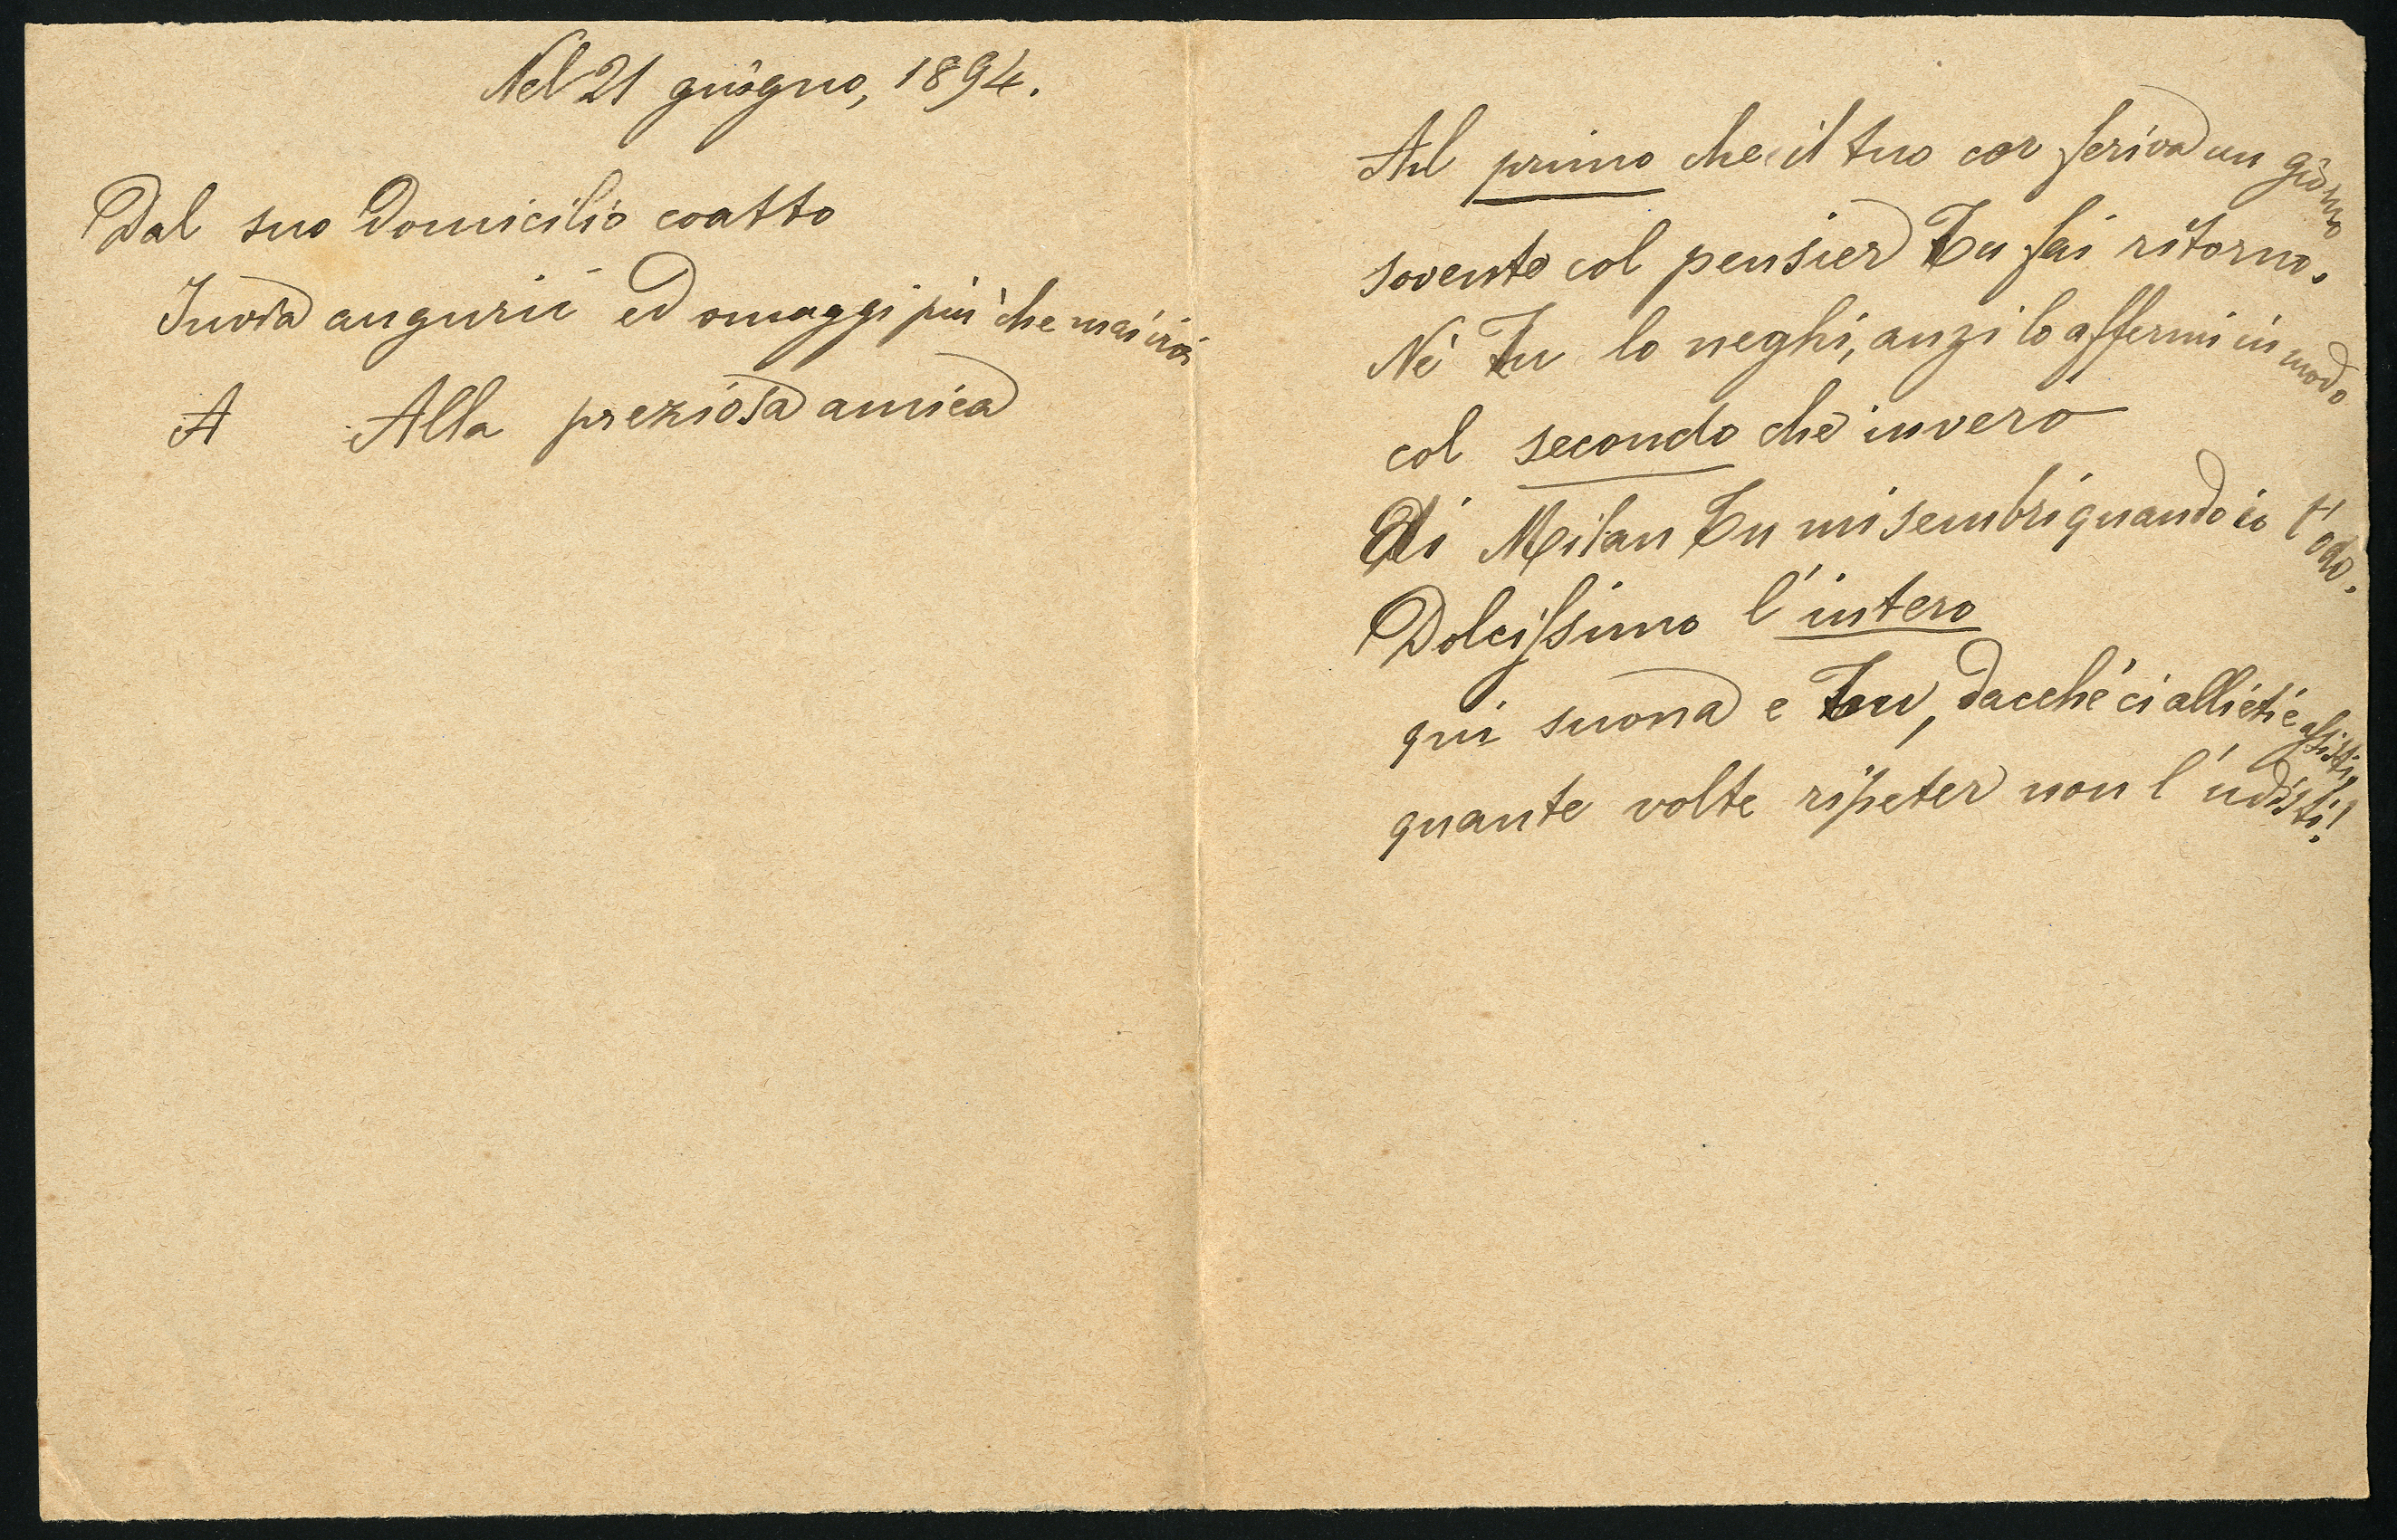 Nel 21 giugno, 1894.
Dal suo Domicilio coatto
Invia augurii ed omaggi più che mai vivi
A Alla preziosa amica
Al primo che il tuo cor feriva un giorno
sovente col pensier Tu fai ritorno.
Nè Tu lo neghi, anzi lo affermi in modo
col secondo che invero
Di Milan Tu mi sembri quando io t'odo.
Dolcissimo l'intero
qui suona e Tu, dacchè ci allieti e assisti,
quante volte ripeter non l'udisti!